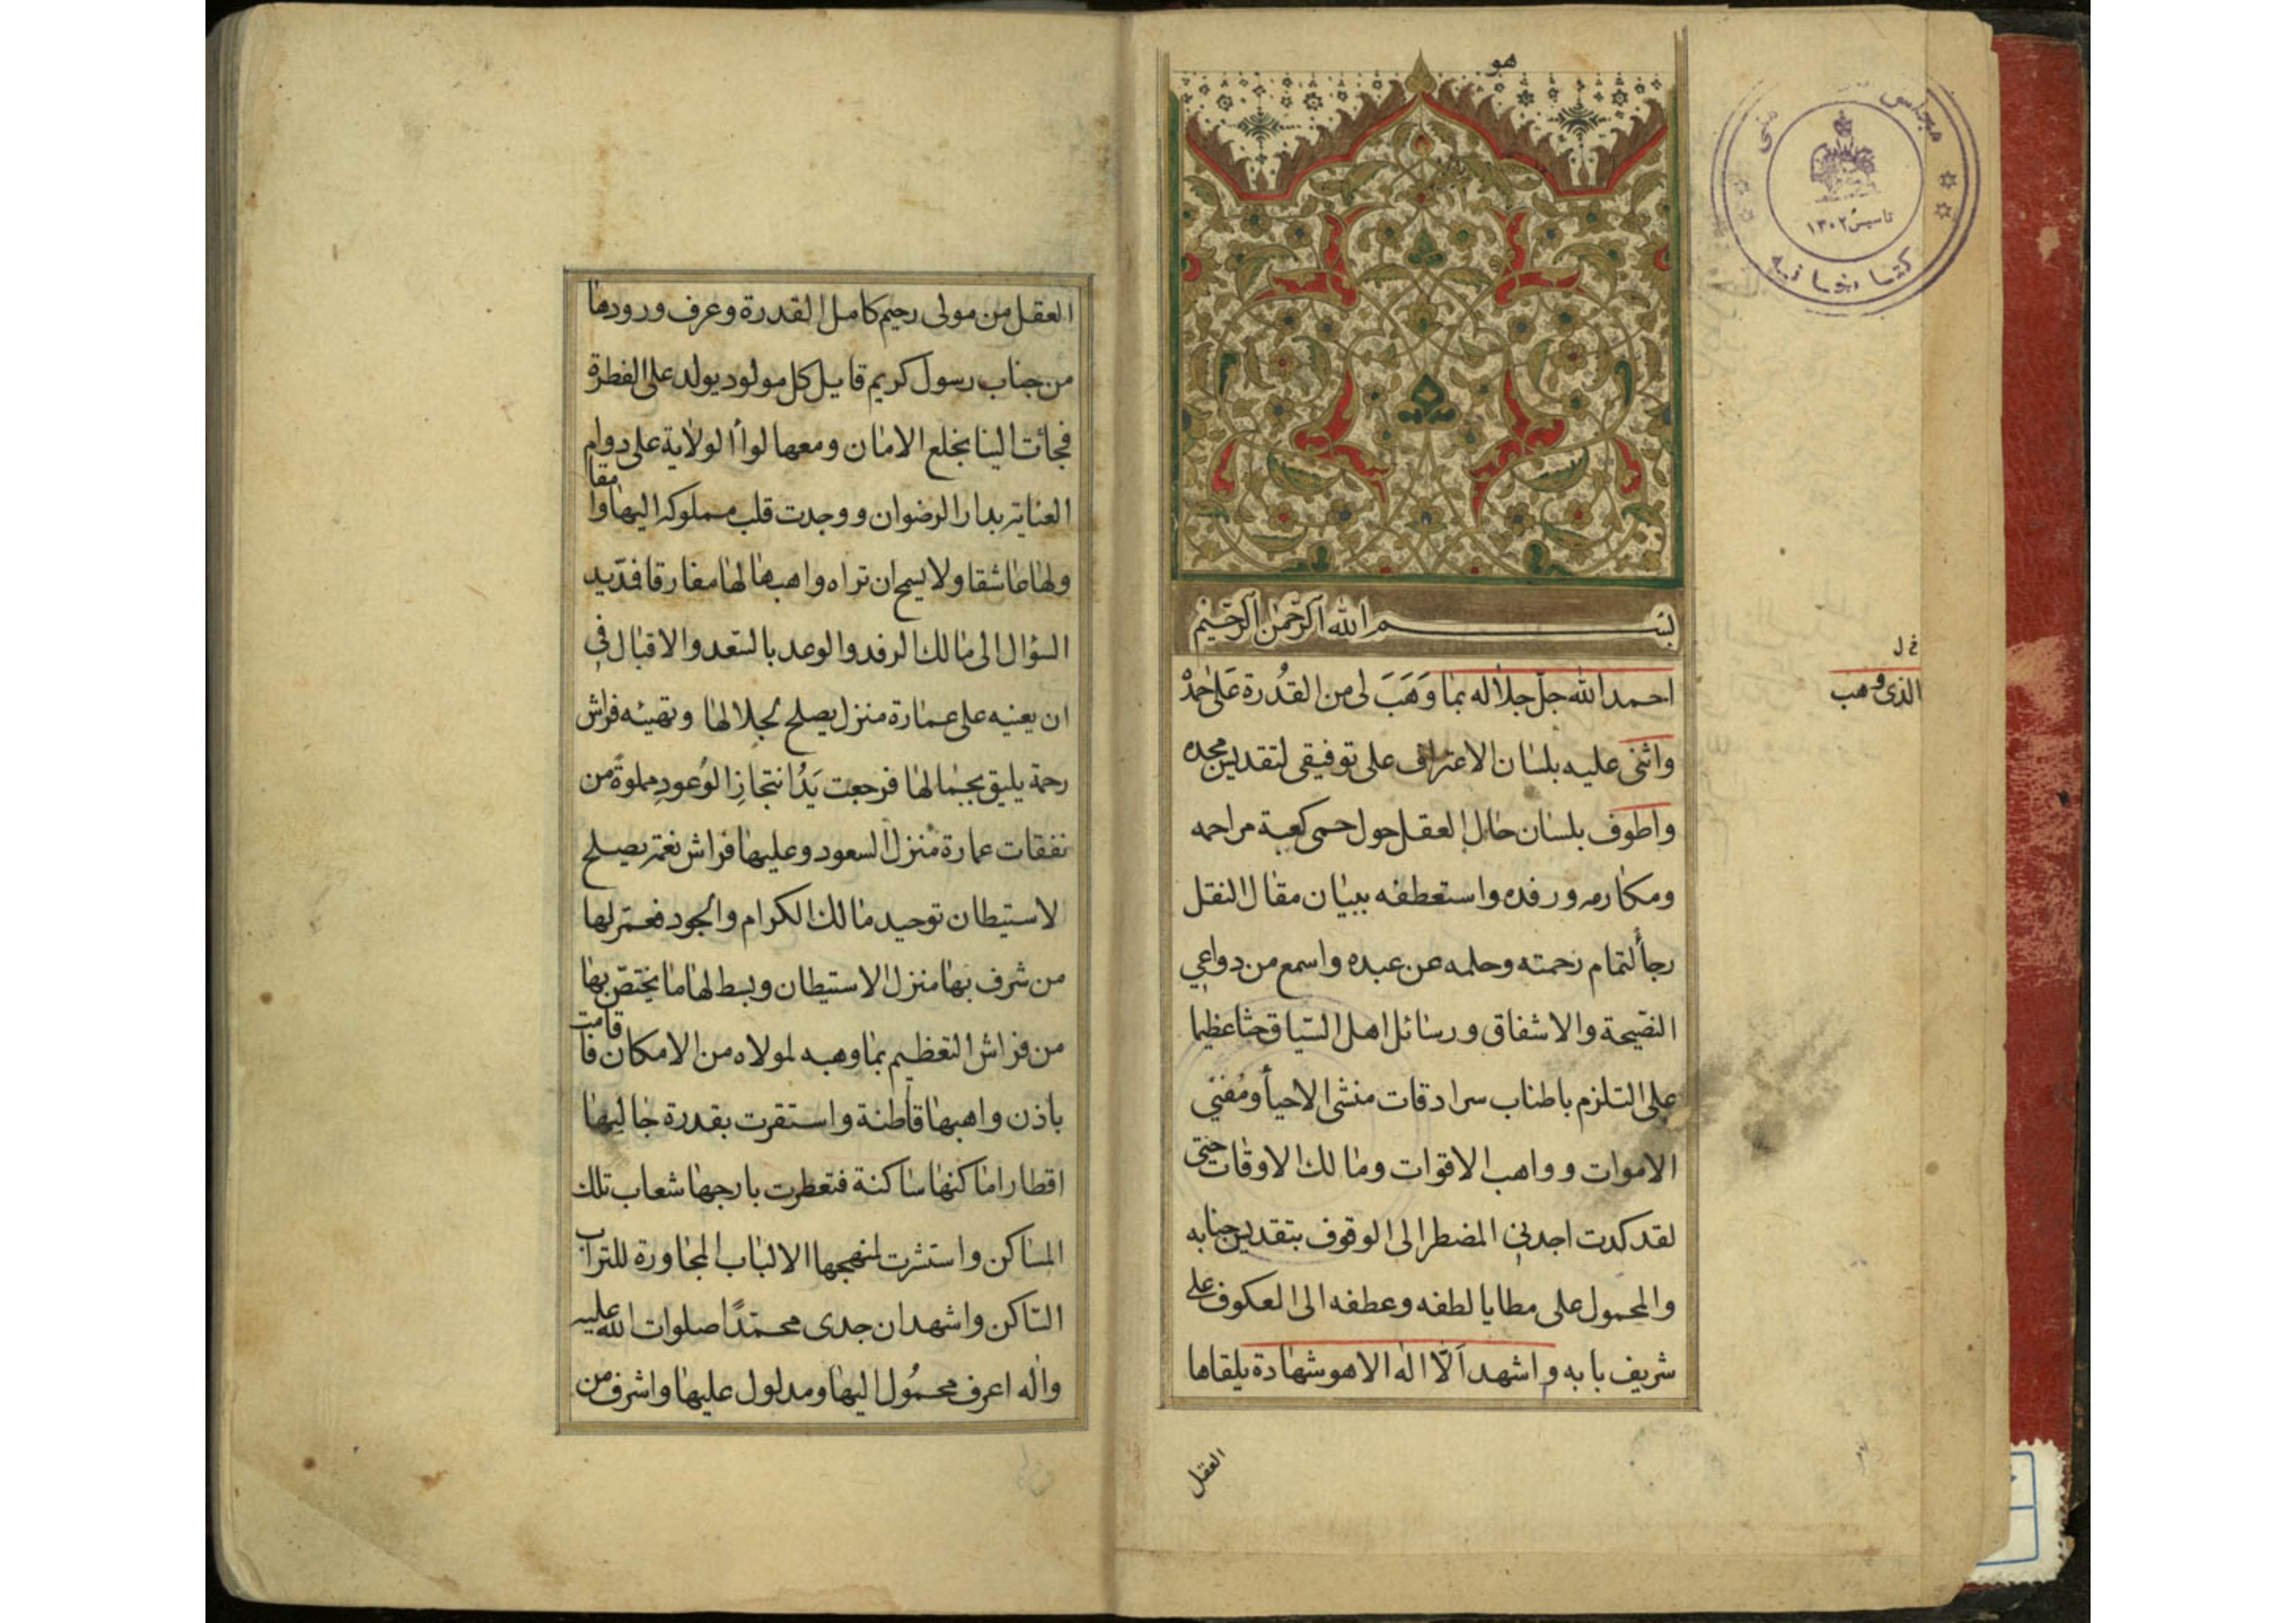 هو
بسم الله الرحمن الرحيم
احمد الله جل جلاله بما وَهَبَ لى من القُدرة عَلىٰ حمدهْ
واثنى عليه بلسان الاعتراف على توفيقى لتقديس مجده
واطوف بلسان حال العقل حول حمى كعبة مراحمه
ومكارمه ورفده واستعطفه ببيان مقال النقل
رجأ لتمام رحمته وحلمه عن عبده واسمع من دواعي
النصيحة والاشفاق ورسائل اهل السّياق حثا عظيما
على التلزم باطناب سرادقات منشى الاحيأ ومُفني
الاموات وواهب الاقوات ومالك الاوقات حتى
لقد كدت اجدني المضطر الى الوقوف بتقديس جنابه
والمحمول على مطايا لطفه وعطفه الى العكوف على
شريف بابه واشهد اَلّا اله الا هو شهادة يلقاها
العقل
خ ل
الذى وهب
تاسيس ١٣٠٢
كتابخانه
العقل من مولى رحيم كامل القدرة وعرف ورودها
من جناب رسول كريم قايل كل مولود يولد على الفطرة
فجائت الينا بخلع الامان ومعها لوأ الولاية على دوام مقا
العناية بدار الرضوان ووجدت قلب مملوكه اليها وا
ولها عاشقا ولا يسمح ان تراه واهبها لها مفارقا فمدّ يد
السؤال الى مالك الرفد والوعد بالسّعد والاقبال في
ان يعينه على عمارة منزل يصلح لجلالها وتهيئه فراش
رحمة يليق بجمالها فرجعت يَدُ انتجازِ الوُعودِ مملوةً من
نفقات عمارة منزل السعود وعليها فراش نعمة يصلح
لاستيطان توحيد مالك الكرام والجود فعمّر لها
من شرف بها منزل الاستيطان وبسط لها ما يختصّ بها
من فراش التعظيم بما وهبه لمولاه من الامكان فا قامت
باذن واهبها قاطنة واستقرت بقدرة جاليها
اقطار اماكنها ساكنة فتعطرت بارجها شعاب تلك
المساكن واستثرت لمنهجها الالباب المجاورة للتراب
السّاكن واشهد ان جدى محمّدًا صلوات الله عليه
واله اعرف محمُول اليها ومدلول عليها واشرف من